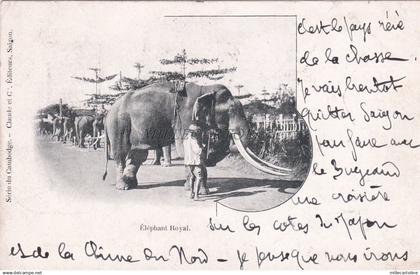 Série du Cambodge. — Claude et Cie, Éditeurs, Saïgon.
Éléphant Royal.
c'est le pays rêvé
de la chasse.
Je vais bientôt
quitter Saigon
pour faire avec
le Bugeaud
une croisière
sur les côtes du Japon
et de la Chine du Nord — je pense que nous irons
www.delcampe.net